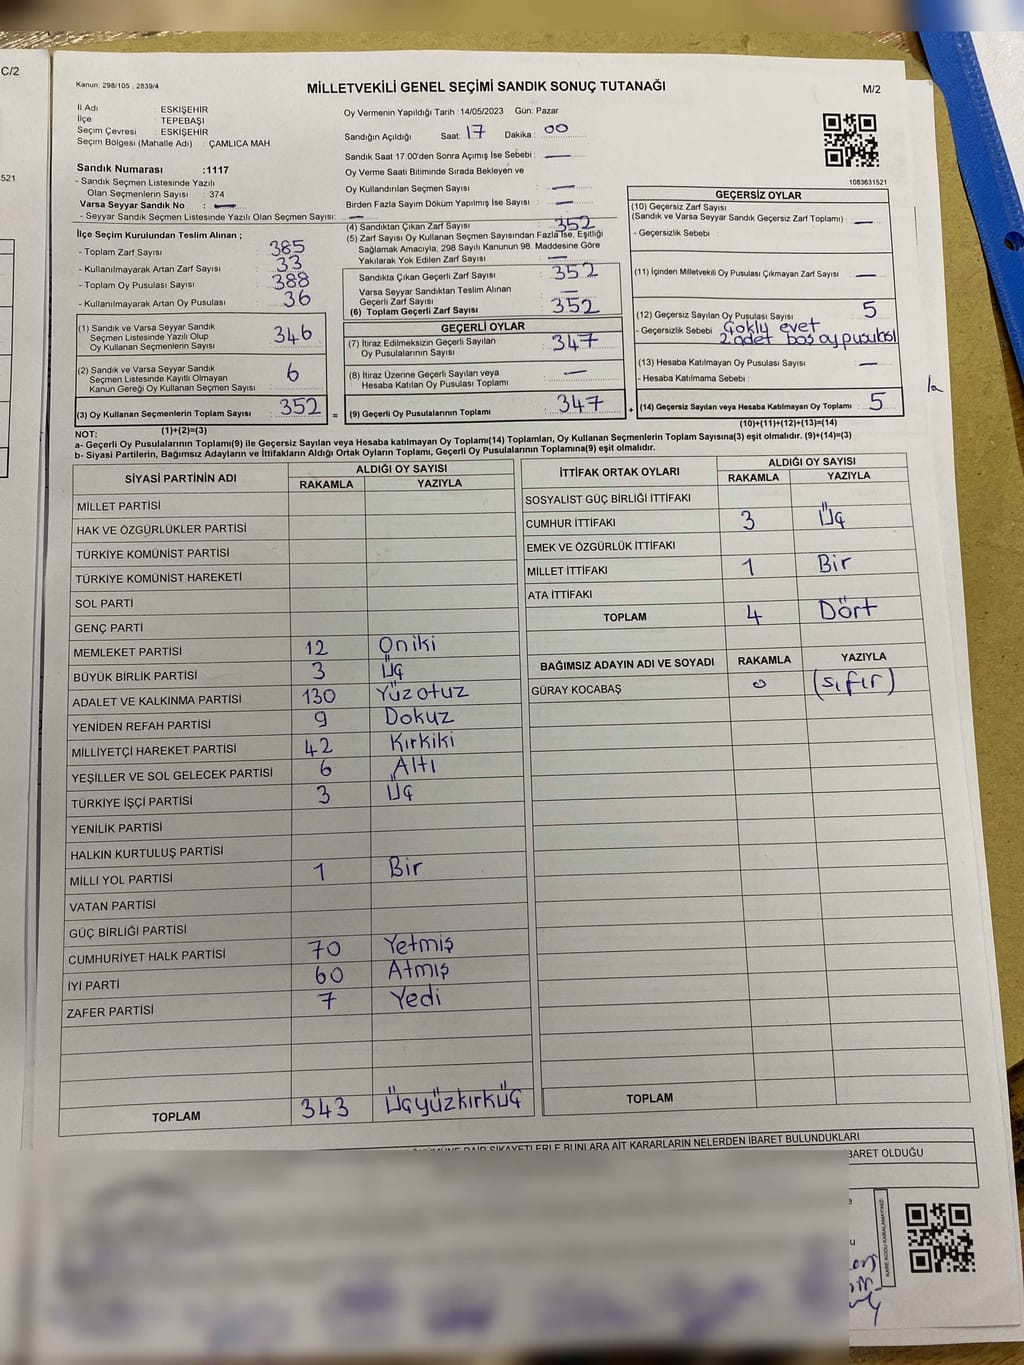 C/2
521
Kanun: 298/105 , 2839/4
MİLLETVEKİLİ GENEL SEÇİMİ SANDIK SONUÇ TUTANAĞI
M/2
İl Adı : ESKİŞEHİR
İlçe : TEPEBAŞI
Seçim Çevresi : ESKİŞEHİR
Seçim Bölgesi (Mahalle Adı) : ÇAMLICA MAH
Sandık Numarası :1117
- Sandık Seçmen Listesinde Yazılı
Olan Seçmenlerin Sayısı : 374
Varsa Seyyar Sandık No : —
- Seyyar Sandık Seçmen Listesinde Yazılı Olan Seçmen Sayısı: —
Oy Vermenin Yapıldığı Tarih : 14/05/2023 Gün: Pazar
Sandığın Açıldığı Saat: 17 Dakika : 00
Sandık Saat 17.00'den Sonra Açımış İse Sebebi : —
Oy Verme Saati Bitiminde Sırada Bekleyen ve
Oy Kullandırılan Seçmen Sayısı : —
Birden Fazla Sayım Döküm Yapılmış İse Sayısı : —
1083631521
İlçe Seçim Kurulundan Teslim Alınan ;
- Toplam Zarf Sayısı : 385
- Kullanılmayarak Artan Zarf Sayısı : 33
- Toplam Oy Pusulası Sayısı : 388
- Kullanılmayarak Artan Oy Pusulası : 36
(1) Sandık ve Varsa Seyyar Sandık
Seçmen Listesinde Yazılı Olup
Oy Kullanan Seçmenlerin Sayısı : 346
(2) Sandık ve Varsa Seyyar Sandık
Seçmen Listesinde Kayıtlı Olmayan
Kanun Gereği Oy Kullanan Seçmen Sayısı : 6
(3) Oy Kullanan Seçmenlerin Toplam Sayısı : 352
(1)+(2)=(3)
(4) Sandıktan Çıkan Zarf Sayısı : 352
(5) Zarf Sayısı Oy Kullanan Seçmen Sayısından Fazla İse, Eşitliği
Sağlamak Amacıyla, 298 Sayılı Kanunun 98. Maddesine Göre
Yakılarak Yok Edilen Zarf Sayısı : —
Sandıkta Çıkan Geçerli Zarf Sayısı : 352
Varsa Seyyar Sandıktan Teslim Alınan
Geçerli Zarf Sayısı : —
(6) Toplam Geçerli Zarf Sayısı : 352
GEÇERLİ OYLAR
(7) İtiraz Edilmeksizin Geçerli Sayılan
Oy Pusulalarının Sayısı : 347
(8) İtiraz Üzerine Geçerli Sayılan veya
Hesaba Katılan Oy Pusulası Toplamı : —
= (9) Geçerli Oy Pusulalarının Toplamı : 347
GEÇERSİZ OYLAR
(10) Geçersiz Zarf Sayısı
(Sandık ve Varsa Seyyar Sandık Geçersiz Zarf Toplamı) : —
- Geçersizlik Sebebi :
(11) İçinden Milletvekili Oy Pusulası Çıkmayan Zarf Sayısı : —
(12) Geçersiz Sayılan Oy Pusulası Sayısı : 5
- Geçersizlik Sebebi : Çoklu evet
2 adet boş oy pusulası
(13) Hesaba Katılmayan Oy Pusulası Sayısı : —
- Hesaba Katılmama Sebebi :
+ (14) Geçersiz Sayılan veya Hesaba Katılmayan Oy Toplamı : 5
(10)+(11)+(12)+(13)=(14)
NOT:
a- Geçerli Oy Pusulalarının Toplamı(9) ile Geçersiz Sayılan veya Hesaba katılmayan Oy Toplamı(14) Toplamları, Oy Kullanan Seçmenlerin Toplam Sayısına(3) eşit olmalıdır. (9)+(14)=(3)
b- Siyasi Partilerin, Bağımsız Adayların ve İttifakların Aldığı Ortak Oyların Toplamı, Geçerli Oy Pusulalarının Toplamına(9) eşit olmalıdır.
SİYASİ PARTİNİN ADI ALDIĞI OY SAYISI
RAKAMLA YAZIYLA
MİLLET PARTİSİ
HAK VE ÖZGÜRLÜKLER PARTİSİ
TÜRKİYE KOMÜNİST PARTİSİ
TÜRKİYE KOMÜNİST HAREKETİ
SOL PARTİ
GENÇ PARTİ
MEMLEKET PARTİSİ 12 Oniki
BÜYÜK BİRLİK PARTİSİ 3 Üç
ADALET VE KALKINMA PARTİSİ 130 Yüzotuz
YENİDEN REFAH PARTİSİ 9 Dokuz
MİLLİYETÇİ HAREKET PARTİSİ 42 Kırkiki
YEŞİLLER VE SOL GELECEK PARTİSİ 6 Altı
TÜRKİYE İŞÇİ PARTİSİ 3 Üç
YENİLİK PARTİSİ
HALKIN KURTULUŞ PARTİSİ
MİLLİ YOL PARTİSİ 1 Bir
VATAN PARTİSİ
GÜÇ BİRLİĞİ PARTİSİ
CUMHURİYET HALK PARTİSİ 70 Yetmiş
İYİ PARTİ 60 Atmış
ZAFER PARTİSİ 7 Yedi
TOPLAM 343 Üçyüzkırküç
İTTİFAK ORTAK OYLARI ALDIĞI OY SAYISI
RAKAMLA YAZIYLA
SOSYALİST GÜÇ BİRLİĞİ İTTİFAKI
CUMHUR İTTİFAKI 3 Üç
EMEK VE ÖZGÜRLÜK İTTİFAKI
MİLLET İTTİFAKI 1 Bir
ATA İTTİFAKI
TOPLAM 4 Dört
BAĞIMSIZ ADAYIN ADI VE SOYADI RAKAMLA YAZIYLA
GÜRAY KOCABAŞ 0 (sıfır)
TOPLAM
ŞİKAYETLERLE BUNLARA AİT KARARLARIN NELERDEN İBARET BULUNDUKLARI
BARET OLDUĞU
KARE KODU KARALAMAYINIZ